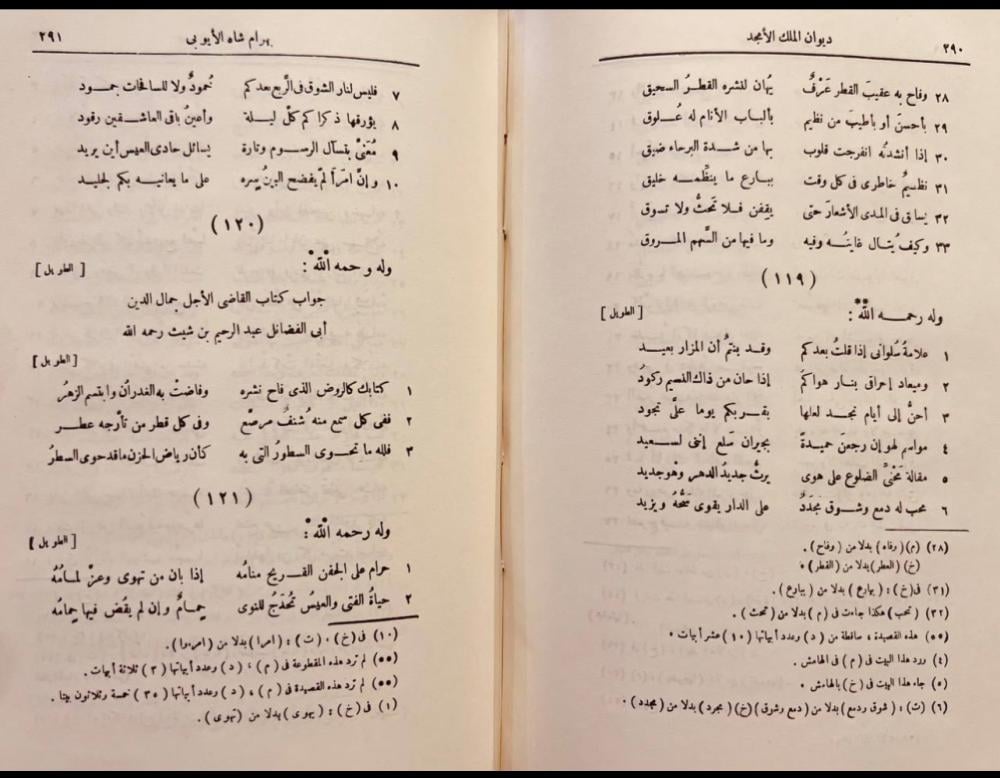 ٢٩٠ ديوان الملك الأمجد
٢٨ وفاح به عقيبَ القطر عَرْفٌ يُهان لنشره القطرُ السحيق
٢٩ بأحسنَ أو بأطيبَ من نظيم بألباب الأنام له عُلوق
٣٠ إذا أنشدتُه انفرجت قلوب بها من شدة البرحاء ضيق
٣١ نظيمُ خاطرى فى كل وقت ببارع ما ينظِّمه خليق
٣٢ يساق فى المدى الأشعارَ حتى يقِفن فلا تَحثُّ ولا تسوق
٣٣ وكيف يُنال غايتُه وفيه وما فيها من السَّهم المروق
( ١١٩ )
وله رحمه اللّٰه** : [ الطويل ]
١ علامةُ سُلوانى إذا قلتُ بعدكم وقد ينتمُ أن المزار بعيد
٢ وميعاد إحراقى بنار هواكمُ إذا حان من ذاك النسيم ركودُ
٣ أحنُّ إلى أيام نجد لعلها بقربكم يوما علىَّ تجود
٤ مواسم لهو إن رجعنَ حميدةً بجيران سَلع إننى لسعيد
٥ مقالة مَحْنىّ الضلوع على هوى يرثُّ جديدُ الدهر وهْو جديد
٦ محب له دمع وشوق مجَدّدٌ على الدار يقوى سَحُّهُ ويزيد
(٢٨) (م) ( وفاه ) بدلا من ( وفاح ) .
(خ) (العطر) بدلا من (القطر) .
(٣١) فى(خ) : ( يبارع ) بدلا من ( ببارع ) .
(٣٢) ( تحب ) هكذا جاءت فى ( م ) بدلا من ( تحث ) .
(**) هذه القصيدة ، ساقطة من ( د ) وعدد أبياتها ( ١٠ ) عشر أبيات .
(٤) ورد هذا البيت فى ( م ) فى الهامش .
(٥) جاء هذا البيت فى ( خ ) بالهامش .
(٦) (ت) : ( شوق ودمع ) بدلا من ( دمع وشوق ) (خ) ( مجرد ) بدلا من ( مجدد ) .
بهرام شاه الأيوبى ٢٩١
٧ فليس لنار الشوق فى الرَّبع بعدكم خُمودٌ ولا للسافحات جمود
٨ يؤرقها ذكراكم كلَّ ليلة وأعين باقى العاشقين رقود
٩ مُعَنىًّ بتسآل الرسوم وتارة يسائل حادى العيس أين يريد
١٠ وإنَّ امرَأً لم يفضح البينُ سِره على ما يعانيه بكم لجليد
( ١٢٠ )
وله رحمه اللّٰه : [ الطويل ]
جواب كتاب القاضى الأجل جمال الدين
أبى الفضائل عبد الرحيم بن شيث رحمه الله
[ الطويل ]
١ كتابك كالروض الذى فاح نشره وفاضتْ به الغدرانُ وابتسم الزهرُ
٢ ففى كل سمع منه شُنفٌ مرصّع وفى كل قطر من تأرّجه عطر
٣ فلله ما تحوى السطورُ التى به كأن رياض الحزن ما قد حوى السطرُ
( ١٢١ )
وله رحمه اللّٰه : [ الطويل ]
١ حرام على الجفن القريح منامُه إذا بان من تهوى وعزّ لمامُهُ
٢ حياةُ الفتى والعيسُ تُحدَجُ للنوى حِمامٌ وإن لم يُقضَ فيها حِمامُه
(١٠) فى(خ) ، (ت) : ( امرا ) بدلا من ( امرءوا ) .
(**) لم ترد هذه المقطوعة فى ( م ) ، ( د ) وعدد أبياتها ( ٣ ) ثلاثة أبيات .
(**) لم ترد هذه القصيدة فى ( م ) ، ( د ) وعدد أبياتها ( ٣٥ ) خمسة وثلاثون بيتا .
(١) فى (خ) : ( يهوى ) بدلا من ( تهوى ) .